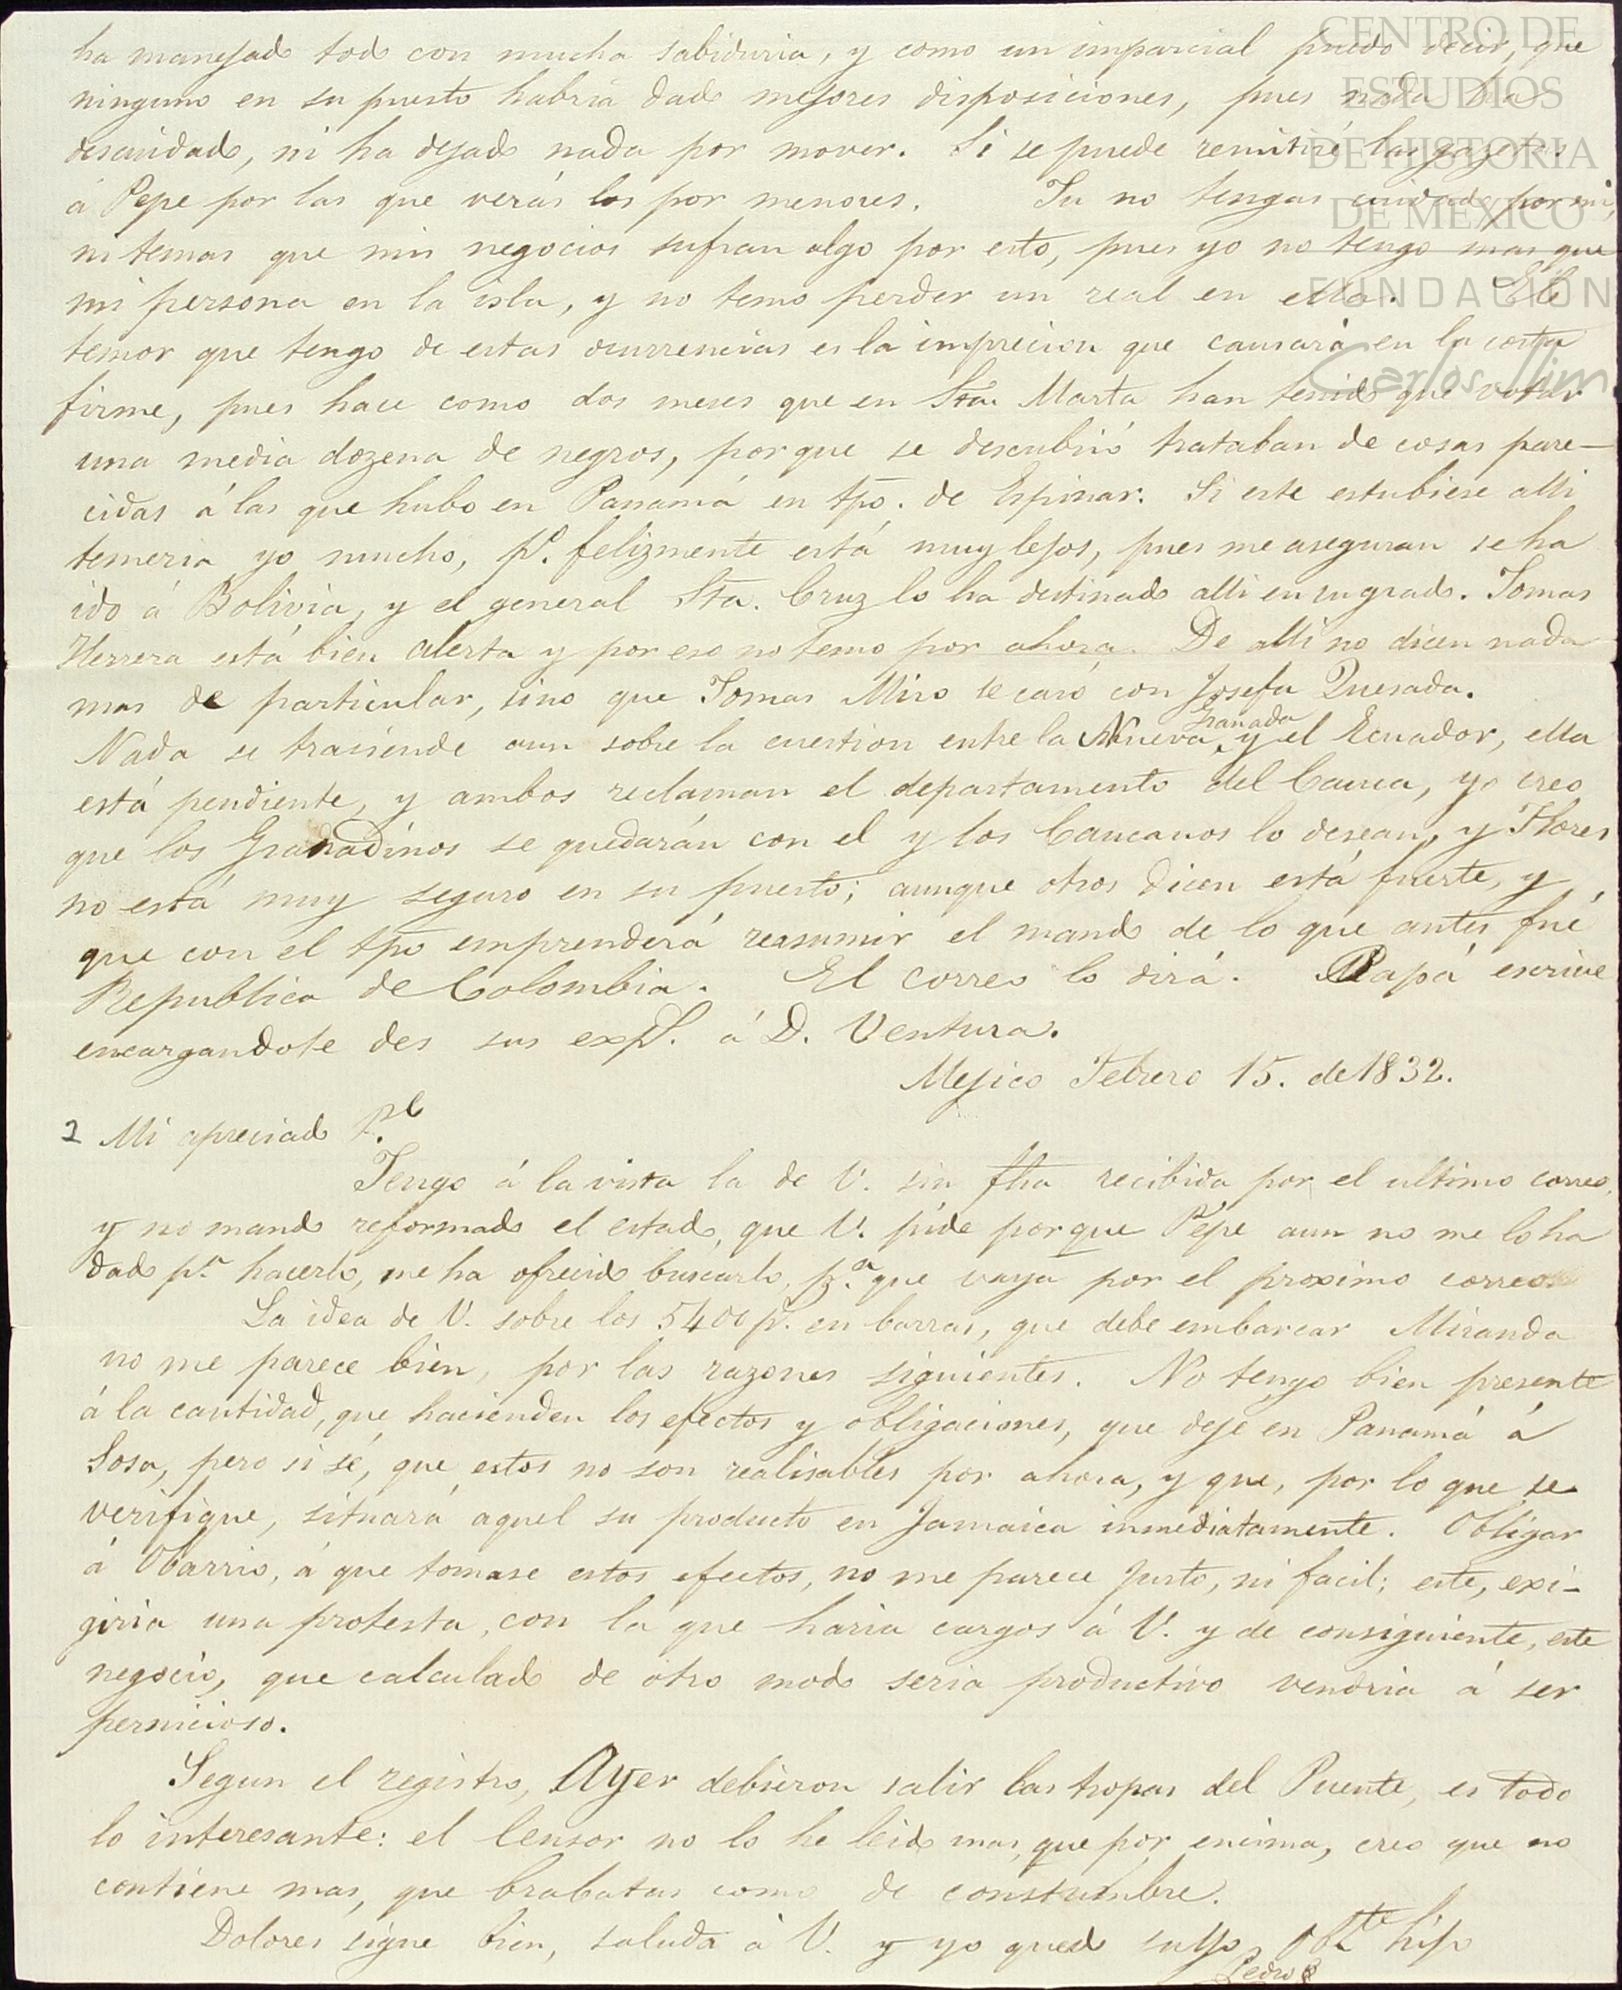 CENTRO DE
ESTUDIOS
DE HISTORIA
DE MEXICO
FUNDACIÓN
Carlos Slim
ha manejado todo con mucha sabiduria, y como un imparcial puedo decir, que
ninguno en su puesto habria dado mejores disposiciones, pues nada ha
descuidado, ni ha dejado nada por mover. Si se puede remitiré las gazetas
á Pepe por las que verás los por menores. Tu no tengas cuidado por mi,
ni temas que mis negocios sufran algo por esto, pues yo no tengo mas que
mi persona en la isla, y no temo perder un real en ella. El
temor que tengo de estas ocurrencias es la imprecion que causará en la costa
firme, pues hace como dos meses que en Sta. Marta han tenido que votar
una media dozena de negros, porque se descubrió trataban de cosas pare-
cidas á las que hubo en Panamá en tpo. de Espinar. Si este estubiese alli
temeria yo mucho, po. felizmente está muy lejos, pues me aseguran se ha
ido á Bolivia, y el general Sta. Cruz lo ha destinado alli en su grado. Tomas
Herrera está bien alerta y por eso no temo por ahora. De alli no dicen nada
mas de particular, sino que Tomas Miro se casó con Josefa Quesada.
Nada se trasiende aun sobre la cuestion entre la Nueva Granada y el Ecuador, ella
está pendiente, y ambos reclaman el departamento del Cauca, yo creo
que los Granadinos se quedarán con el y los Caucanos lo desean, y Flores
no está muy seguro en su puesto; aunque otros dicen está fuerte, y
que con el tpo emprenderá reasumir el mando de lo que antes fué
Republica de Colombia. El correo lo dirá. Papá escrive
encargandote des sus exps. á D. Ventura.
Mejico Febrero 15. de 1832.
2 Mi apreciado Pe
Tengo á la vista la de V. sin fha recibida por el ultimo correo,
y no mando reformado el estado, que V. pide porque Pepe aun no me lo ha
dado pa. hacerlo, me ha ofrecido buscarlo, pa. que vaya por el proximo correo.
La idea de V. sobre los 5400 ps. en barras, que debe embarcar Miranda
no me parece bien, por las razones siguientes. No tengo bien presente
á la cantidad, que hacienden los efectos y obligaciones, que deje en Panamá á
Sosa, pero si sé, que estos no son realisables por ahora, y que, por lo que se
verifique, situará aquel su producto en Jamaica inmediatamente. Obligar
á Obarrio, á que tomase estos efectos, no me parece justo, ni facil; este, exi-
giria una protesta, con la que haria cargos á V. y de consiguiente, este
negocio, que calculado de otro modo seria productivo vendria á ser
pernicioso.
Segun el registro, Ayer debieron salir las tropas del Puente, es todo
lo interesante: el Censor no lo he leido mas, que por encima, creo que no
contiene mas, que brabatas como de constumbre.
Dolores sigue bien, saluda á V. y yo quedo suyo Obte hijo
Pedro